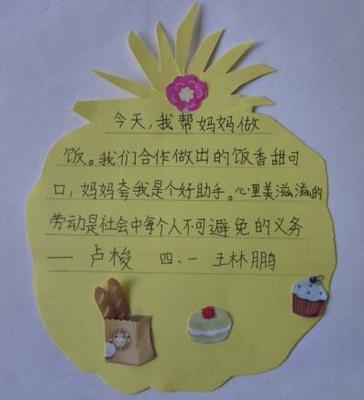 今天，我帮妈妈做
饭。我们合作做出的饭香甜可
口，妈妈夸我是个好助手。心里美滋滋的
劳动是社会中每个人不可避免的义务
——卢梭 四、一 王林鹏